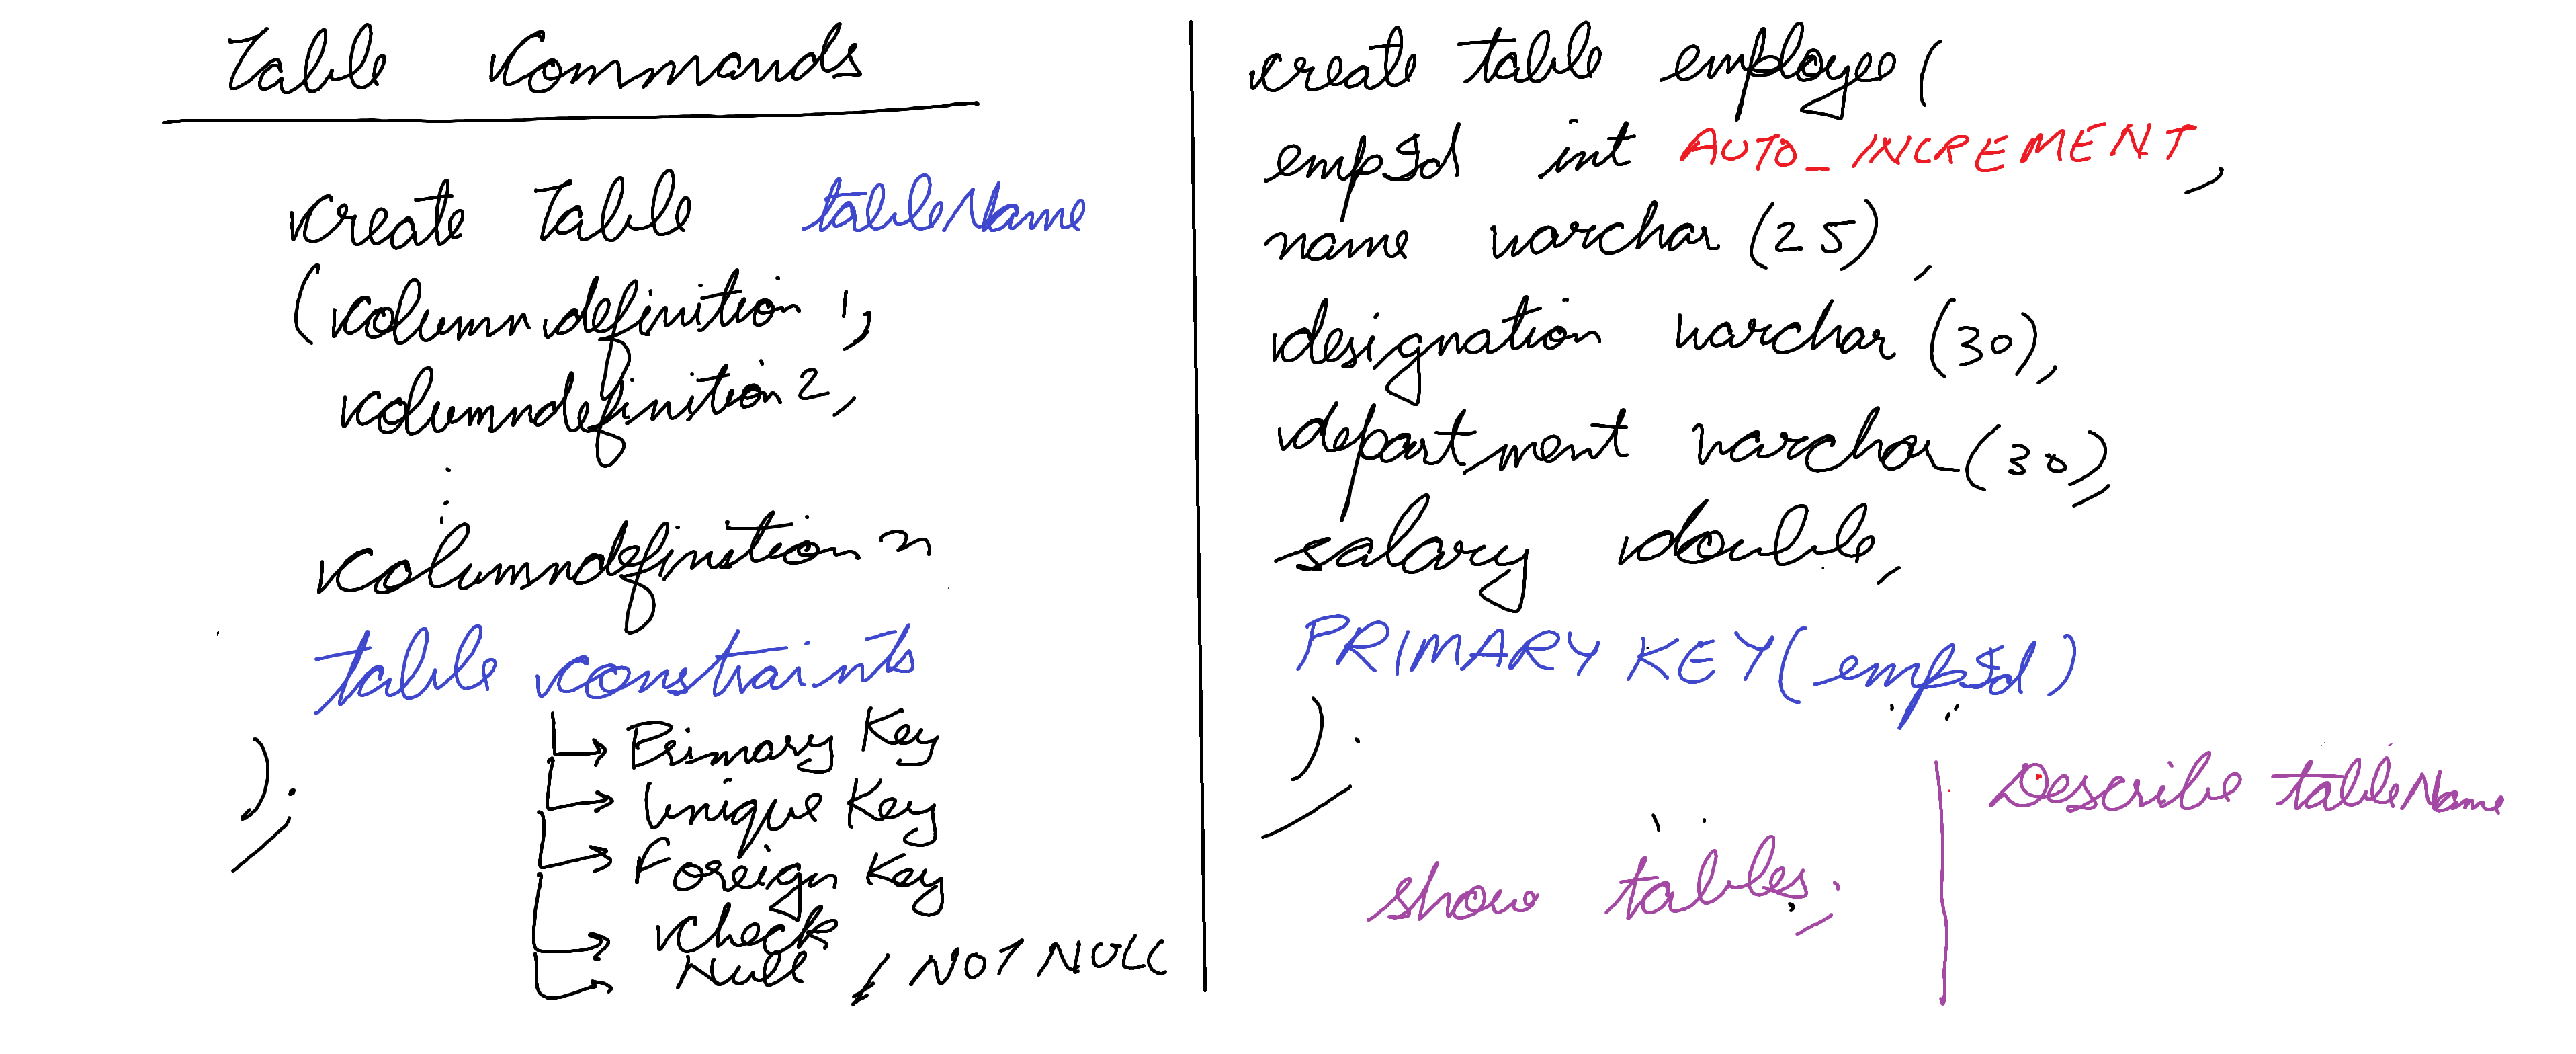 Table Commands
Create Table tableName
(columndefinition 1,
columndefinition 2,
:
columndefinition n
table constraints
→ Primary Key
→ Unique Key
→ Foreign Key
→ Check
→ Null / NOT NULL
);
create table employee(
empId int AUTO_INCREMENT,
name varchar (25),
designation varchar (30),
department varchar (30),
salary double,
PRIMARY KEY (empId)
);
show tables;
Describe tableName